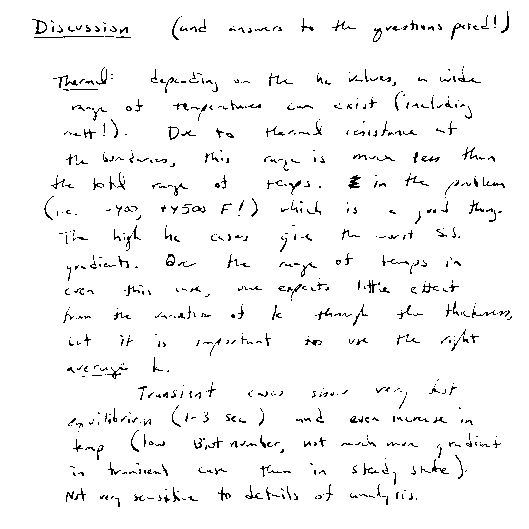 Discussion (and answers to the questions posed!)
Thermal: depending on the hc values, a wide
range of temperatures can exist (including
melt!). Due to thermal resistance at
the boundaries, this range is much less than
the total range of temps. in the problem
(i.e. -400, +4500 F!) which is a good thing.
The high hc cases give the worst S.S.
gradients. Over the range of temps in
even this case, one expects little effect
from the variation of k through the thickness,
but it is important to use the right
average k.
Transient cases show very fast
equilibrium (1-3 sec) and even increase in
temp (low Biot number, not much more gradient
in transient case than in steady state).
Not very sensitive to details of analysis.